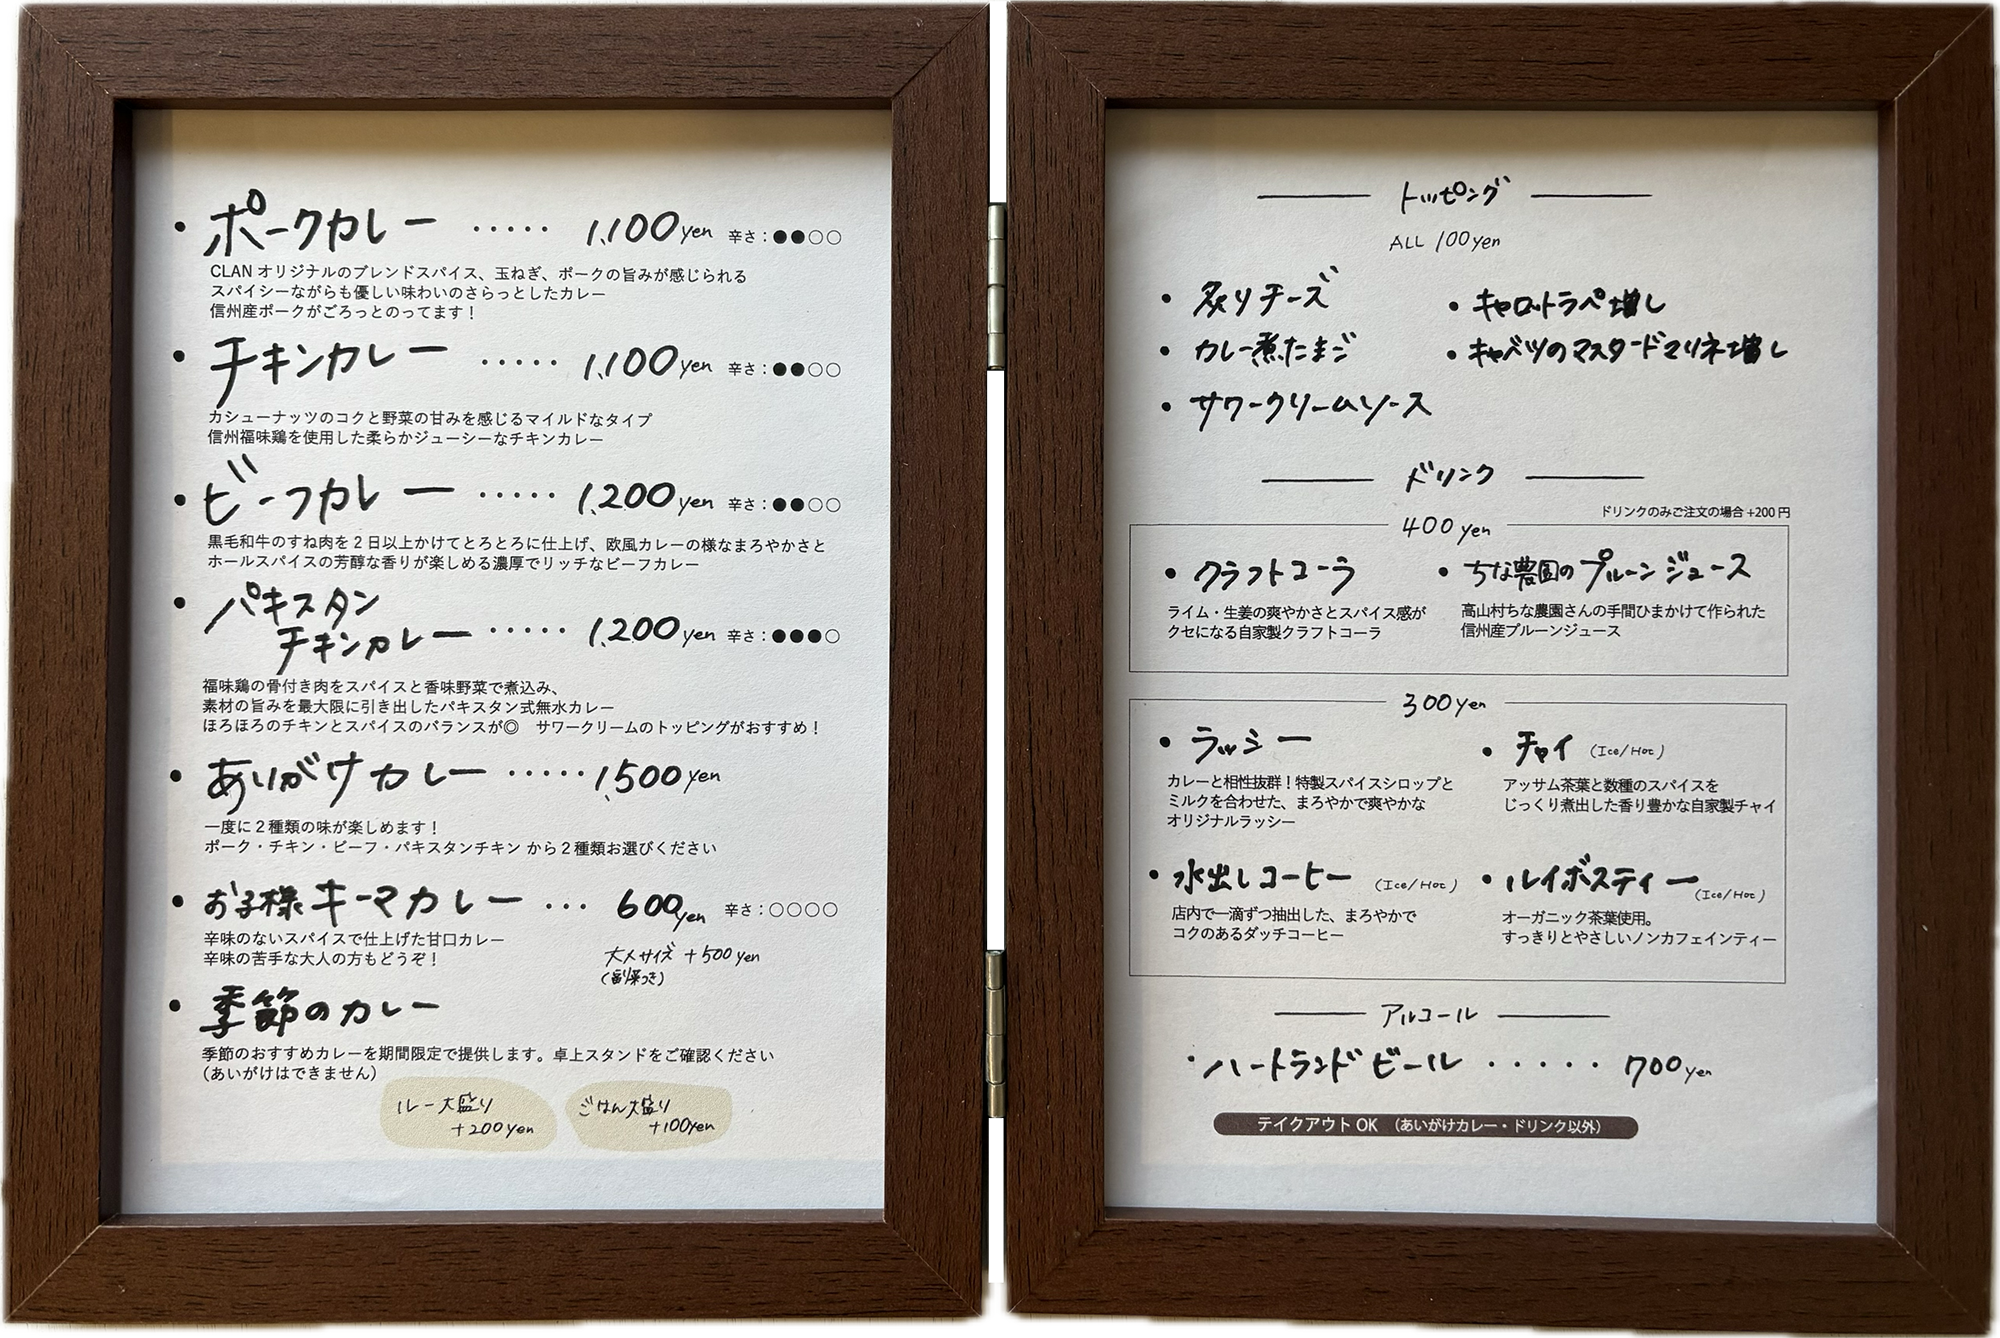 ・ポークカレー ・・・・・ 1,100yen 辛さ：●●○○
CLAN オリジナルのブレンドスパイス、玉ねぎ、ポークの旨みが感じられる
スパイシーながらも優しい味わいのさらっとしたカレー
信州産ポークがごろっとのってます！
・チキンカレー ・・・・・ 1,100yen 辛さ：●●○○
カシューナッツのコクと野菜の甘みを感じるマイルドなタイプ
信州福味鶏を使用した柔らかジューシーなチキンカレー
・ビーフカレー ・・・・・ 1,200yen 辛さ：●●○○
黒毛和牛のすね肉を２日以上かけてとろとろに仕上げ、欧風カレーの様なまろやかさと
ホールスパイスの芳醇な香りが楽しめる濃厚でリッチなビーフカレー
・パキスタン
チキンカレー ・・・・・ 1,200yen 辛さ：●●●○
福味鶏の骨付き肉をスパイスと香味野菜で煮込み、
素材の旨みを最大限に引き出したパキスタン式無水カレー
ほろほろのチキンとスパイスのバランスが◎　サワークリームのトッピングがおすすめ！
・あいがけカレー ・・・・・ 1,500yen
一度に２種類の味が楽しめます！
ポーク・チキン・ビーフ・パキスタンチキン から２種類お選びください
・お子様キーマカレー ・・・ 600yen 辛さ：○○○○
辛味のないスパイスで仕上げた甘口カレー
辛味の苦手な大人の方もどうぞ！
大人サイズ +500yen
(副菜つき)
・季節のカレー
季節のおすすめカレーを期間限定で提供します。卓上スタンドをご確認ください
（あいがけはできません）
ルー大盛り
+200yen
ごはん大盛り
+100yen
トッピング
ALL 100yen
・炙りチーズ
・キャロットラペ増し
・カレー煮たまご
・キャベツのマスタードマリネ増し
・サワークリームソース
ドリンク
ドリンクのみご注文の場合 +200 円
400yen
・クラフトコーラ
ライム・生姜の爽やかさとスパイス感が
クセになる自家製クラフトコーラ
・ちな農園のプルーンジュース
高山村ちな農園さんの手間ひまかけて作られた
信州産プルーンジュース
300yen
・ラッシー
カレーと相性抜群！特製スパイスシロップと
ミルクを合わせた、まろやかで爽やかな
オリジナルラッシー
・チャイ (Ice/Hot)
アッサム茶葉と数種のスパイスを
じっくり煮出した香り豊かな自家製チャイ
・水出しコーヒー (Ice/Hot)
店内で一滴ずつ抽出した、まろやかで
コクのあるダッチコーヒー
・ルイボスティー (Ice/Hot)
オーガニック茶葉使用。
すっきりとやさしいノンカフェインティー
アルコール
・ハートランドビール ・・・・・ 700yen
テイクアウト OK （あいがけカレー・ドリンク以外）